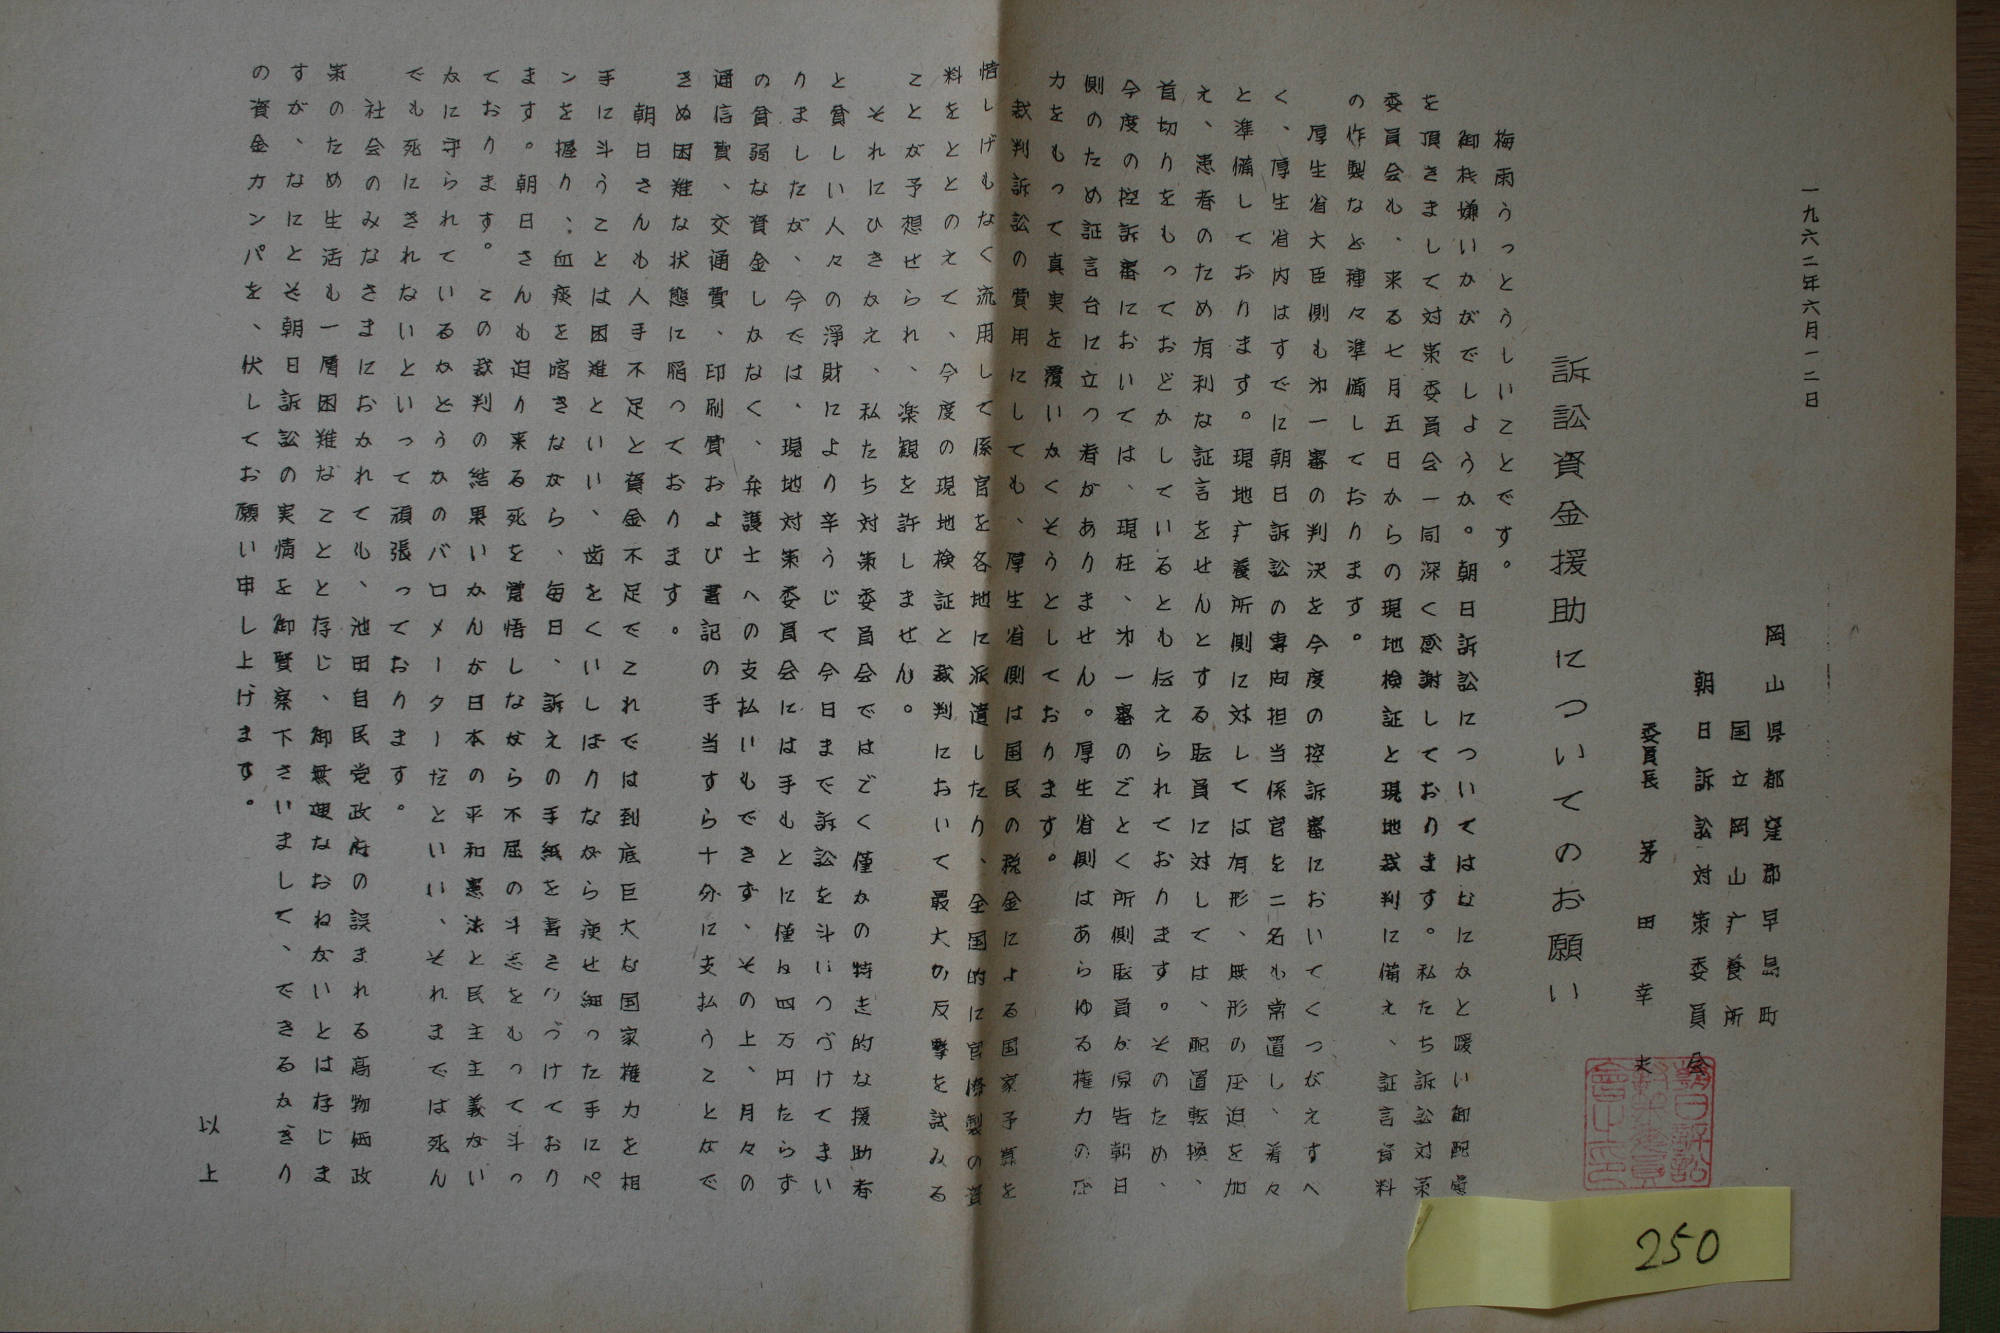 一九六二年六月一二日
岡山県都窪郡早島町
国立岡山疒養所
朝日訴訟対策委員会
委員長 茅田幸夫
訴訟資金援助についてのお願い
梅雨うっとうしいことです。
御機嫌いかがでしようか。朝日訴訟についてはなにかと暖い御配慮
を頂きまして対策委員会一同深く感謝しております。私たち訴訟対策
委員会も、来る七月五日からの現地検証と現地裁判に備え、証言資料
の作製など種々準備しております。
厚生省大臣側も㐧一審の判決を今度の控訴審においてくつがえすべ
く、厚生省内はすでに朝日訴訟の専向担当係官を二名も常置し、着々
と準備しております。現地疒養所側に対しては有形、無形の圧迫を加
え、患者のため有利な証言をせんとする職員に対しては、配置転換、
首切りをもっておどかしているとも伝えられております。そのため、
今度の控訴審においては、現在、㐧一審のごとく所側職員が原告朝日
側のため証言台に立つ者がありません。厚生省側はあらゆる権力の
力をもって真実を覆いかくそうとしております。
裁判訴訟の費用にしても、厚生省側は国民の税金による国家予算を
惜しげもなく流用して係官を各地に派遣したり、全国的に官僚製の資
料をととのえて、今度の現地検証と裁判において最大の反撃を試みる
ことが予想せられ、楽観を許しません。
それにひきかえ、私たち対策委員会ではごく僅かの特志的な援助者
と貧しい人々の淨財により辛うじて今日まで訴訟を斗いつづけてまい
りましたが、今では、現地対策委員会には手もとに僅々四万円たらず
の貧弱な資金しかなく、弁護士への支払いもできず、その上、月々の
通信費、交通費、印刷費および書記の手当すら十分に支払うことなで
きぬ困難な状態に陥っております。
朝日さんも人手不足と資金不足でこれでは到底巨大な国家権力を相
手に斗うことは困難といい、歯をくいしばりながら疫せ細った手にペ
ンを握り、血痰を喀きながら、毎日、訴えの手紙を書きつづけており
ます。朝日さんも迫り来る死を覚悟しながら不屈の斗志をもって斗っ
ております。この裁判の結果いかんが日本の平和憲法と民主主義がい
かに守られているかどうかのバロメーターだといい、それまでは死ん
でも死にきれないといって頑張っております。
社会のみなさまにおかれても、池田自民党政府の誤まれる高物価政
策のため生活も一層困難なことと存じ、御無理なおねがいとは存じま
すが、なにとぞ朝日訴訟の実情を御賢察下さいまして、できるかぎり
の資金カンパを、伏してお願い申し上げます。
以上
250